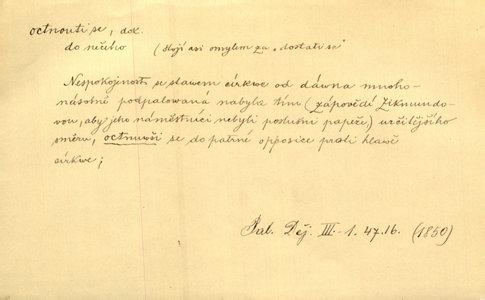 octnouti se, dok.
do něčeho (stojí asi omylem za „dostati se"
Nespokojenost se stawem cirkwe od dáwna mnoho-
násobně podpalowaná nabyla tím (zápowědí Zikmundo-
wou, aby jeho náměstníci nebyli poslušni papeže,) určitějšího
směru, octnuwši se do patrné opposice proti hlawě
cirkwe;
Pal. Děj. III-1. 47.16. (1850)